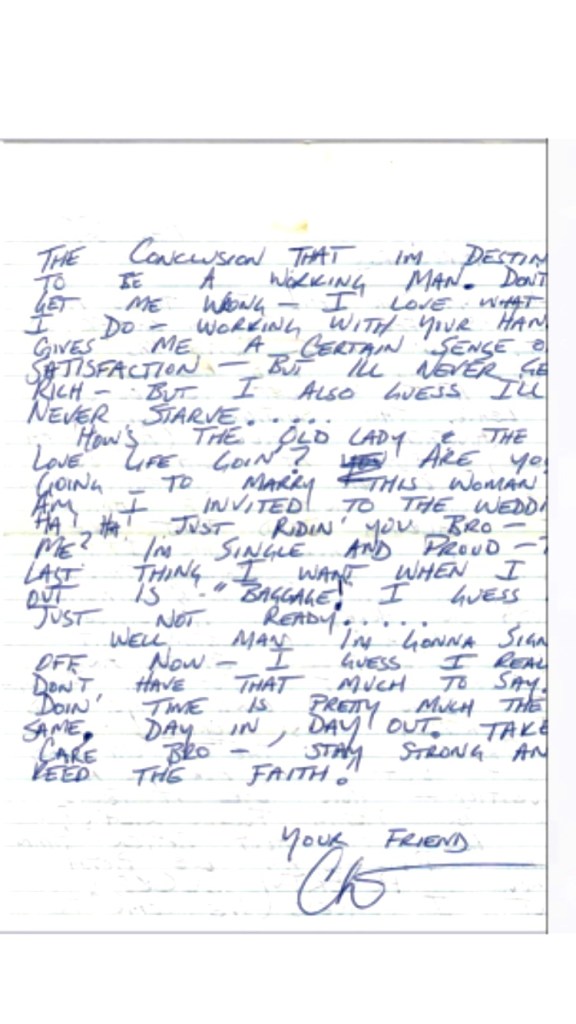 THE CONCLUSION THAT IM DESTIN
TO BE A WORKING MAN. DON'T
GET ME WRONG - I LOVE WHAT
I DO - WORKING WITH YOUR HAN
GIVES ME A CERTAIN SENSE O
SATISFACTION - BUT ILL NEVER GE
RICH - BUT I ALSO GUESS ILL
NEVER STARVE......
HOW'S THE OLD LADY & THE
LOVE LIFE GOIN'? ARE YO
GOING TO MARRY THIS WOMAN
AM I INVITED TO THE WEDDI
HA! HA! JUST RIDIN' YOU BRO -
ME? IM SINGLE AND PROUD -
LAST THING I WANT WHEN I
OUT IS "BAGGAGE! I GUESS
JUST NOT READY.....
WELL MAN IM GONNA SIGN
OFF NOW - I GUESS I REAL
DON'T HAVE THAT MUCH TO SAY.
DOIN' TIME IS PRETTY MUCH THE
SAME. DAY IN, DAY OUT. TAKE
CARE BRO - STAY STRONG AN
KEED THE FAITH!
YOUR FRIEND